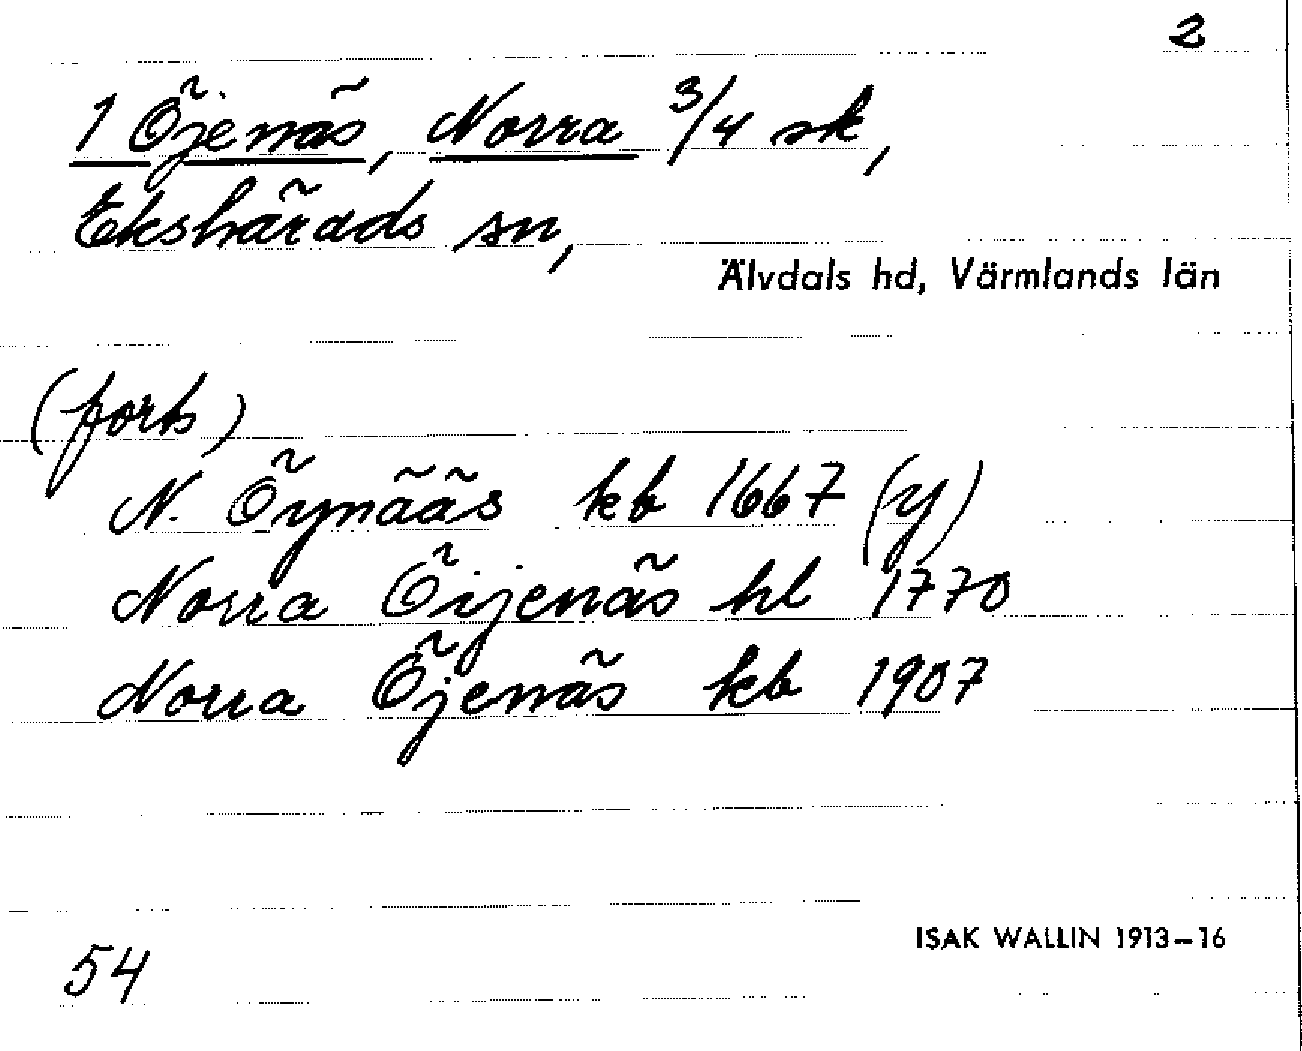 2
1 Öjenäs, Norra 3/4 sk,
Ekshärads sn,
Älvdals hd, Värmlands län
(forts)
N. Öynääs kb 1667 (y)
Norra Öijenäs hl 1770
Norra Öjenäs kb 1907
ISAK WALLIN 1913-16
54